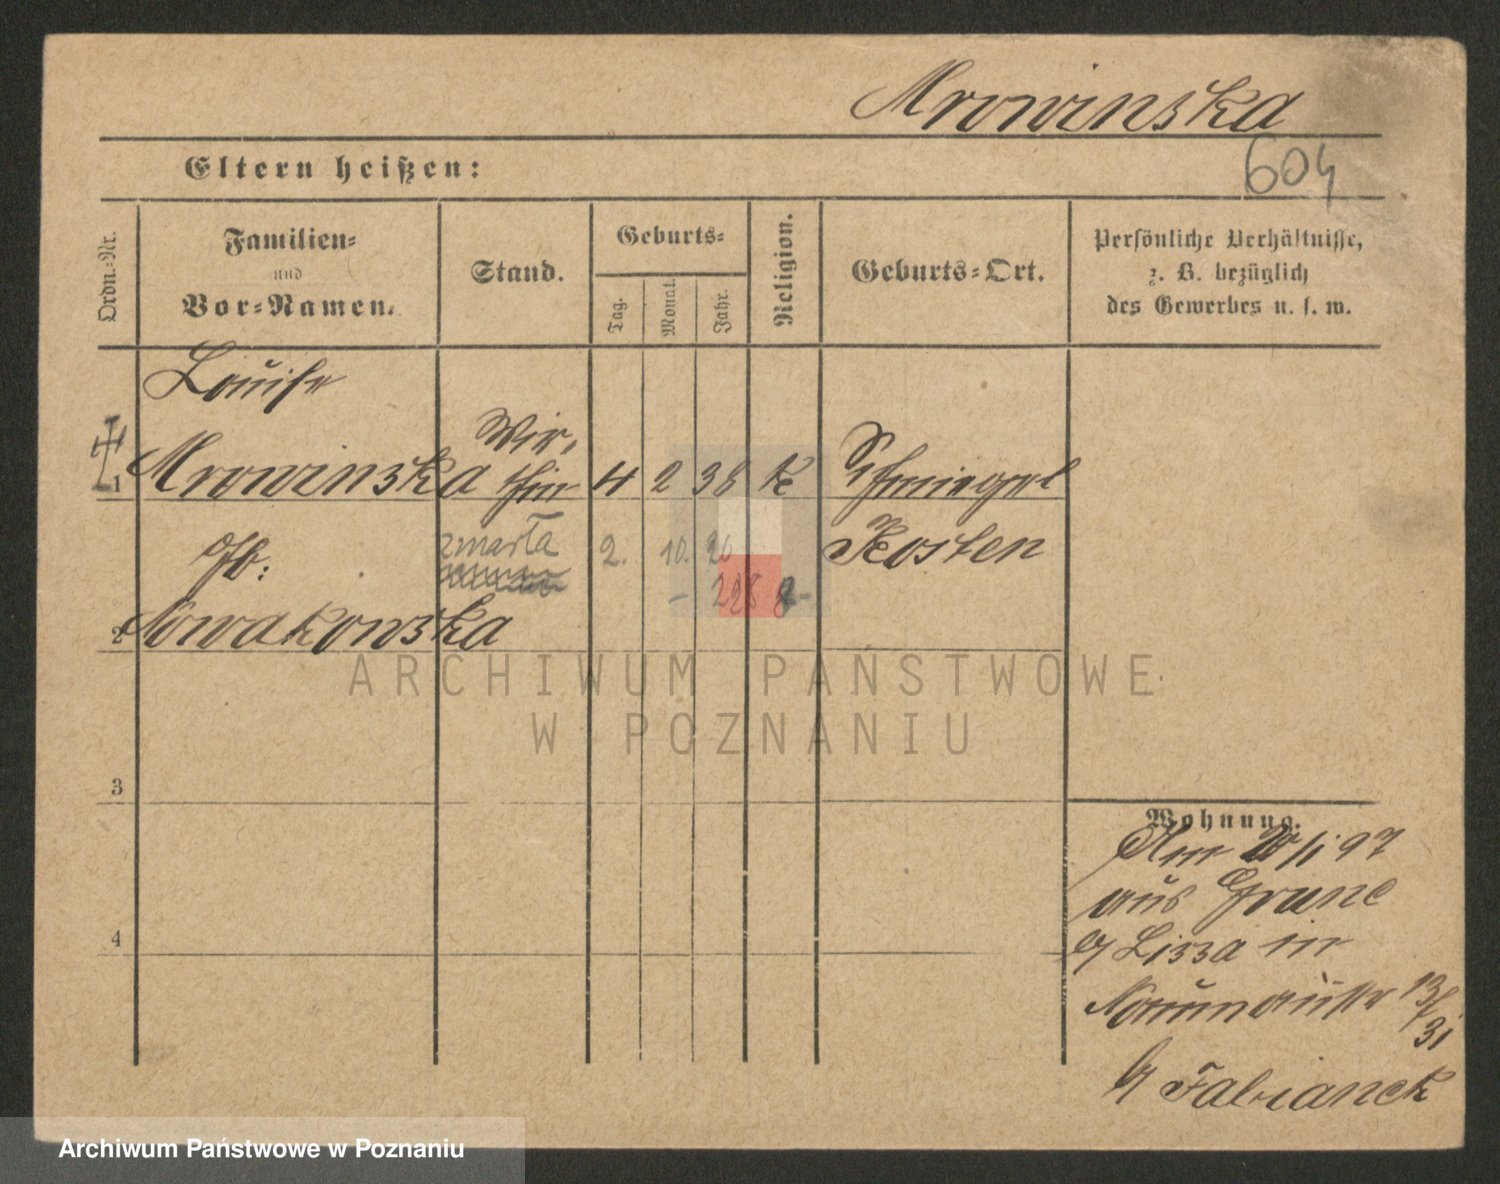 Mrowinska
604
Eltern heißen:
Ordn.-Nr.
Familien-
und
Vor-Namen.
Stand.
Geburts-
Tag.
Monat.
Jahr.
Religion.
Geburts-Ort.
Persönliche Verhältnisse,
z. B. bezüglich
des Gewerbes u. s. w.
Louise
Wir,
1 Mrowinska thin 4 2 38 K Schmiegel
zmarła 2. 10. 20 Kosten
228
2 Nowakowska
3
4
Wohnung.
20/1 97
aus Grune
Lissa in
Naumannstr 13/
31
b/ Fabianek
ARCHIWUM PAŃSTWOWE
W POZNANIU
Archiwum Państwowe w Poznaniu